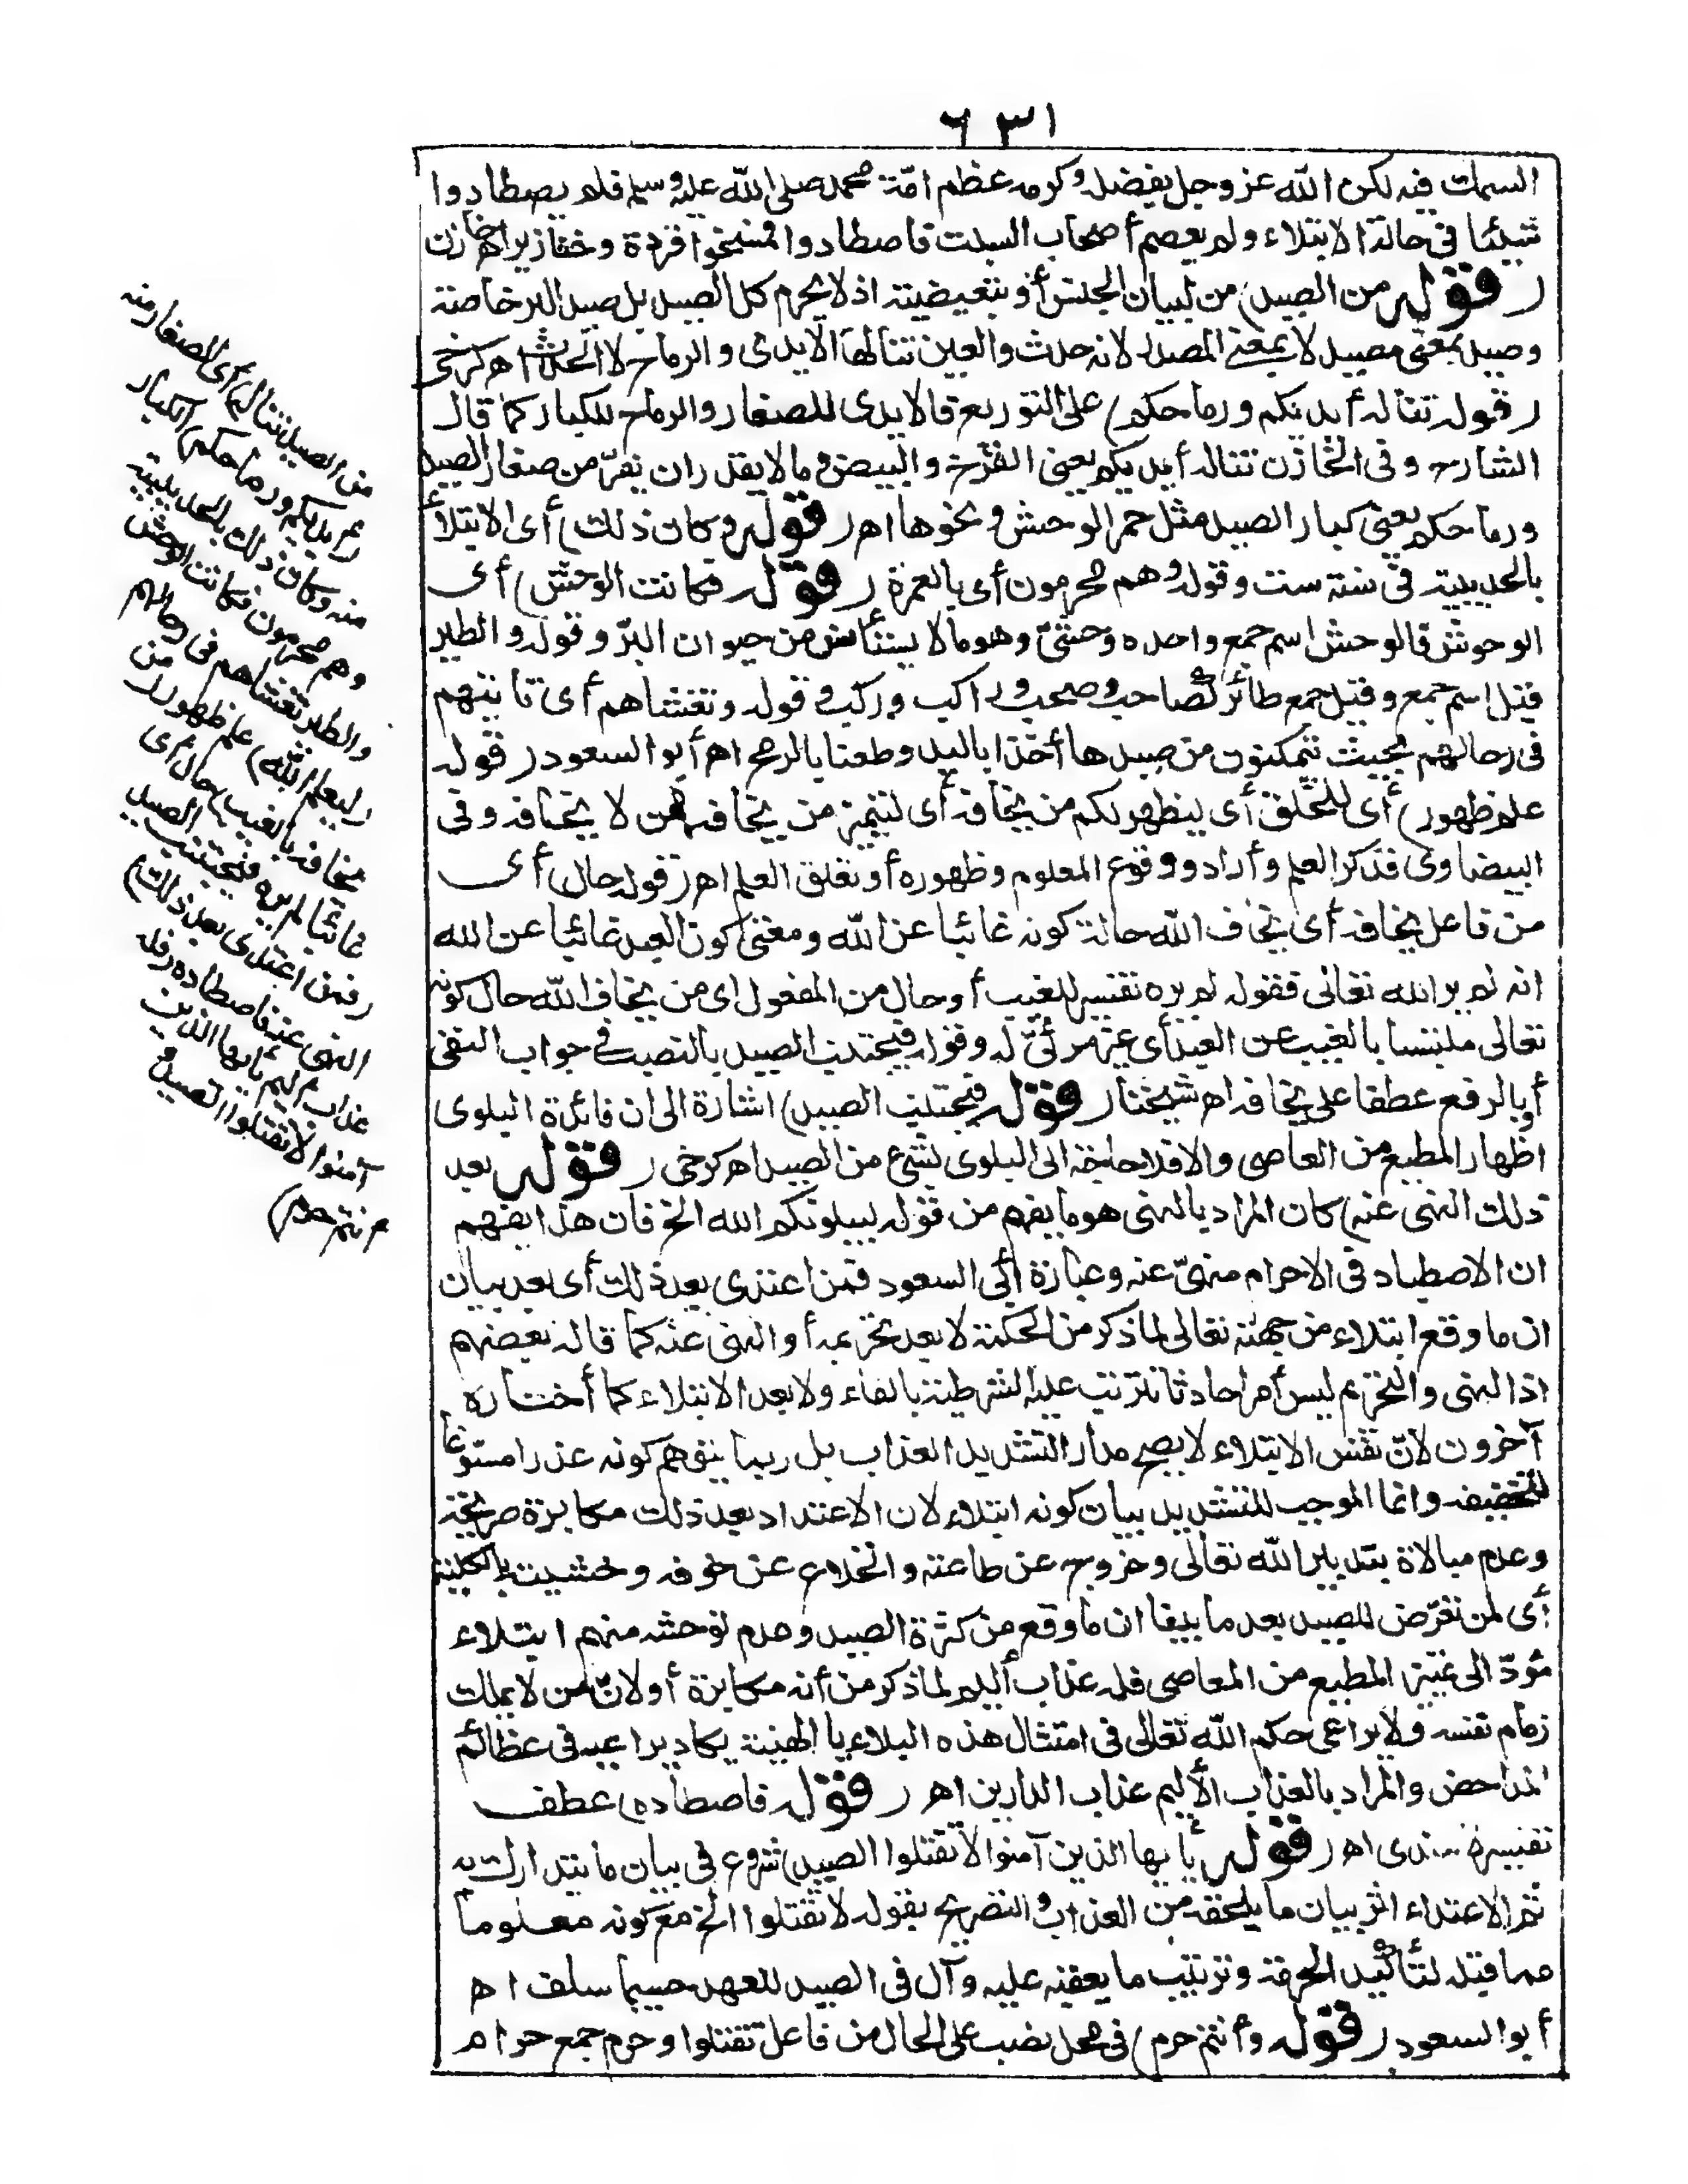 ٦٣١
السمك فيه لكن الله عز وجل بفضله وكرمه عظم امّة محمد صلى الله عليه وسلم فلم يصطادوا
شيئا فى حالة الابتلاء ولم يعصم أصحاب السبت فاصطادوا فمسخوا قردة وخنازير اه خازن
(قوله من الصيد) من لبيان الجنس أو تبعيضية اذ لا يحرم كل الصيد بل صيد البر خاصة
وصيد بمعنى مصيد لا بمعنى المصدر لانه حدث والعين تنالها الايدى والرماح لا الحدث اه كرخى
(قوله تناله أيديكم ورماحكم) على التوزيع فالايدى للصغار والرماح للكبار كما قال
الشارح وفى الخازن تناله أيديكم يعنى الفرخ والبيض وما لا يقدر ان يفرّ من صغار الصيد
ورماحكم يعنى كبار الصيد مثل حمر الوحش ونحوها اه (قوله وكان ذلك) أى الابتلاء
بالحديبية فى سنة ست وقوله وهم محرمون أى بالعمرة (قوله فكانت الوحش) أى
الوحوش فالوحش اسم جمع واحده وحشىّ وهو ما لا يستأنس من حيوان البرّ وقوله والطير
قيل اسم جمع وقيل جمع طائر كصاحب وصحب وراكب وركب وقوله وتغشاهم أى تأتيهم
فى رحالهم بحيث يتمكنون من صيدها أخذا باليد وطعنا بالرمح اه أبو السعود (قوله
علم ظهور) أى للخلق أى يظهر لكم من يخافه أى لتتميز من يخافه ممن لا يخافه وفى
البيضاوى فذكر العلم وأراد وقوع المعلوم وظهوره أو تعلق العلم اه (قوله حال) أى
من فاعل يخافه أى يخاف الله حالة كونه غائبا عن الله ومعنى كون العبد غائبا عن الله
انه لم ير الله تعالى فقوله لم يره تفسير للغيب أو حال من المفعول اى من يخاف الله حال كونه
تعالى ملتبسا بالغيب عن العبد أى غير مرئىّ له وقوله فيجتنب الصيد بالنصب فى جواب النفى
أو بالرفع عطفا على يخافه اه شيخنا (قوله فيجتنب الصيد) اشارة الى ان فائدة البلوى
اظهار المطيع من العاصى والا فلا حاجة الى البلوى بشئ من الصيد اه كرخى (قوله بعد
ذلك النهى عنه) كان المراد بالنهى هو ما يفهم من قوله ليبلونكم الله الخ فان هذا يفهم
ان الاصطياد فى الاحرام منهىّ عنه وعبارة أبى السعود فمن اعتدى بعد ذلك أى بعد بيان
ان ما وقع ابتلاء من جهته تعالى لما ذكر من الحكمة لا بعد تحريمه أو النهى عنه كما قاله بعضهم
اذ النهى والتحريم ليس أمرا حادثا تترتب عليه الشرطية بالفاء ولا بعد الابتلاء كما أختاره
آخرون لانّ نفس الابتلاء لا يصح مدارا لتشديد العذاب بل ربما يتوهم كونه عذرا مسوّغا
لتخفيفه وانما الموجب للتشديد بيان كونه ابتلاء لان الاعتداء بعد ذلك مكابرة صريحة
وعدم مبالاة بتدبير الله تعالى وخروج عن طاعته وانخلاع عن خوفه وخشيته بالكلية
أى لمن تعرّض للصيد بعد ما بينا ان ما وقع من كثرة الصيد وعدم توحشه منهم ابتلاء
مؤدّ الى تميّز المطيع من العاصى فله عذاب أليم لما ذكر من أنه مكابرة أو لانّ من لا يملك
زمام نفسه ولا يراعى حكم الله تعالى فى امتثال هذه البلايا الهينة يكاد يراعيه فى عظائم
المداحض والمراد بالعذاب الأليم عذاب الدارين اه (قوله فاصطاده) عطف
تفسير اه (قوله يأيها الذين آمنوا لا تقتلوا الصيد) شروع فى بيان ما يتدارك به
الاعتداء اثر بيان ما يلحقه من العذاب والتصريح بقوله لا تقتلوا الخ مع كونه معلوما
مما قبله لتأكيد الحرمة وترتيب ما يعقبه عليه وآل فى الصيد للعهد حسبما سلف اه
أبو السعود (قوله وأنتم حرم) فى محل نصب على الحال من فاعل تقتلوا وحرم جمع حرام
من الصيد تناله) أى الصغار منه
(أيديكم ورماحكم) الكبار
منه وكان ذلك بالحديبية
وهم محرمون فكانت الوحش
والطير تغشاهم فى رحالهم
(ليعلم الله) علم ظهور (من
يخافه بالغيب) حال أى
غائبا لم يره فيجتنب الصيد
(فمن اعتدى بعد ذلك)
النهى عنه فاصطاده (فله
عذاب أليم يأيها الذين
آمنوا لا تقتلوا الصيد و
أنتم حرم)